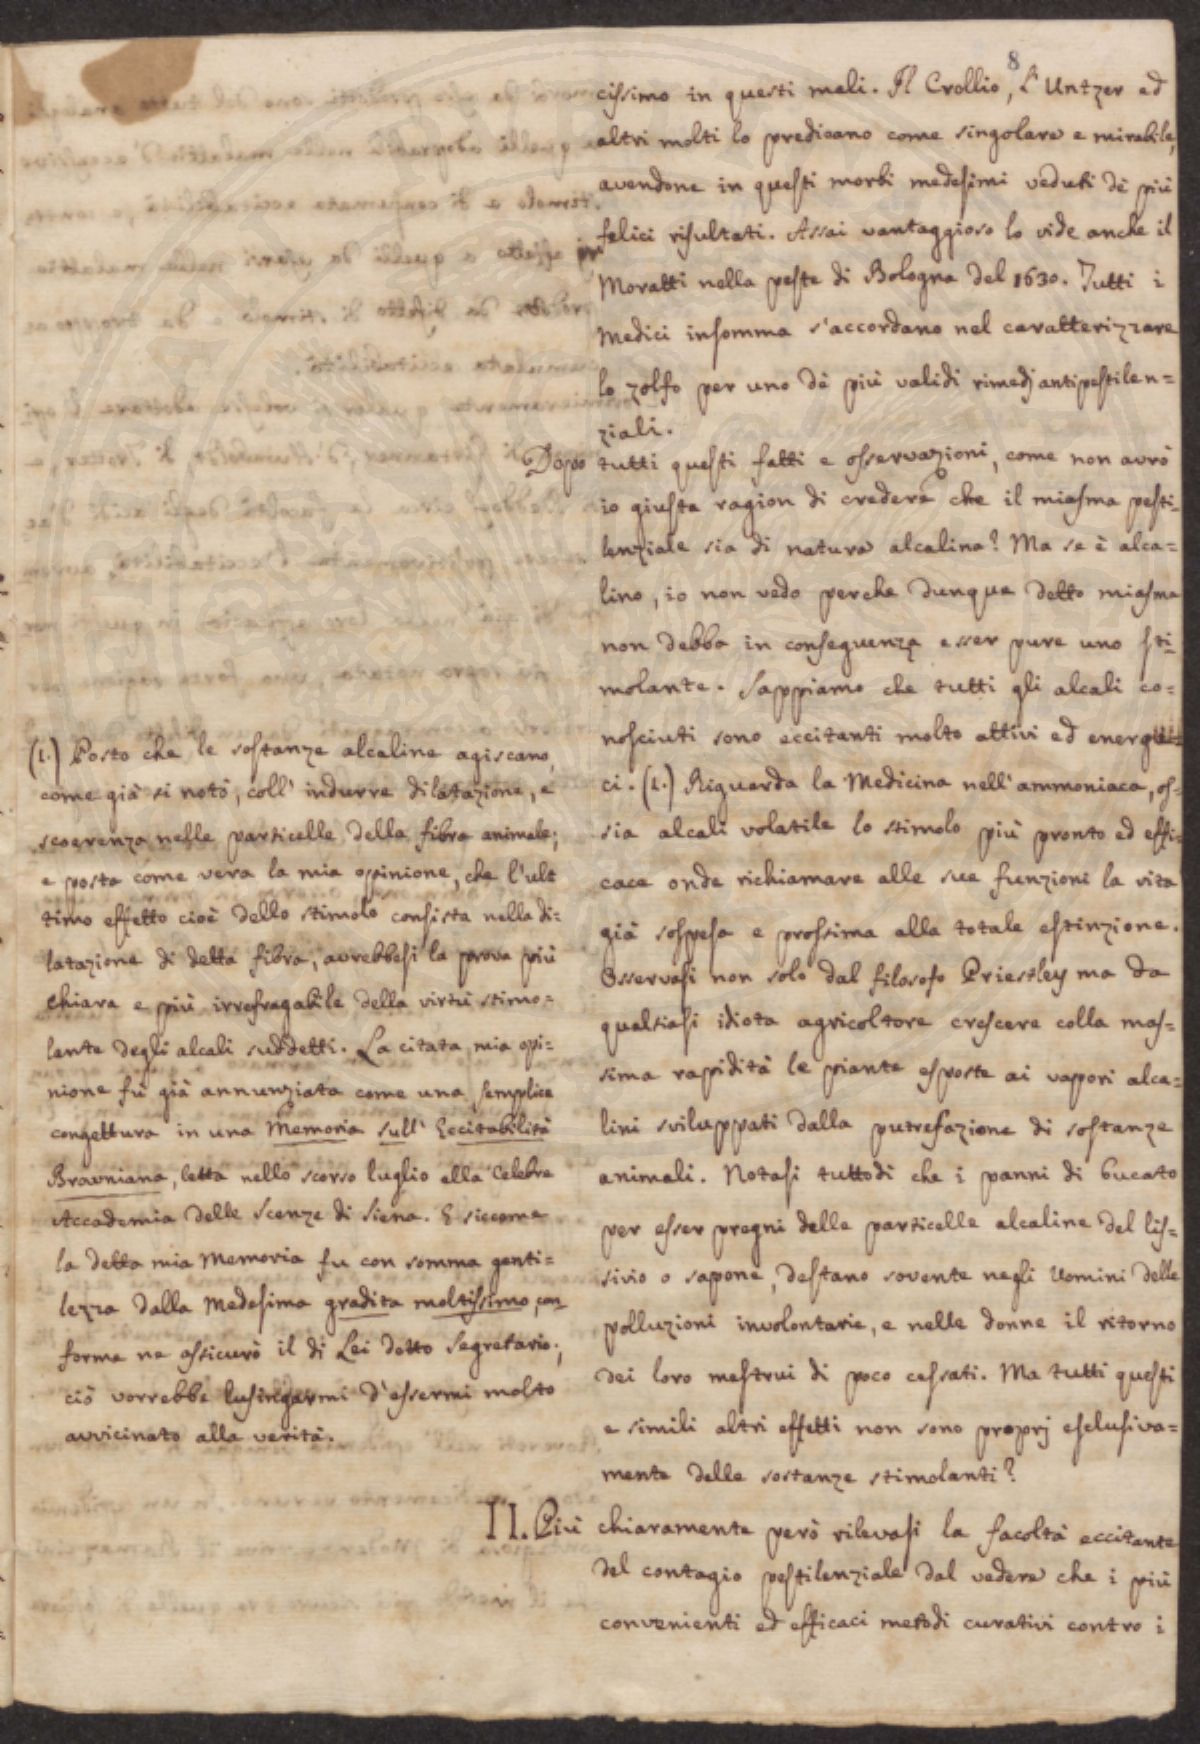 8
cissimo in questi mali. Il Crollio, l'Untzer ed
altri molti lo predicano come singolare e mirabile,
avendone in questi morbi medesimi veduti dè più
felici risultati. Assai vantaggioso lo vide anche il
Moratti nella peste di Bologna del 1630. Tutti i
Medici insomma s'accordano nel caratterizzare
lo zolfo per uno dè più validi rimedj antipestilen=
ziali.
Dopo tutti questi fatti e osservazioni, come non avrò
io giusta ragion di credere che il miasma pesti=
lenziale sia di natura alcalina? Ma se è alca=
lino, io non vedo perche dunque detto miasma
non debba in conseguenza esser pure uno sti=
molante. Sappiamo che tutti gli alcali co=
nosciuti sono eccitanti molto attivi ed energeti=
ci. (1.) Riguarda la Medicina nell'ammoniaca, os=
sia alcali volatile lo stimolo più pronto ed effi=
cace onde richiamare alle sue funzioni la vita
già sospesa e prossima alla totale estinzione.
Osservasi non solo dal filosofo Priestley ma da
qualsiasi idiota agricoltore crescere colla mas=
sima rapidità le piante esposte ai vapori alca=
lini sviluppati dalla putrefazione di sostanze
animali. Notasi tuttodì che i panni di bucato
per esser pregni delle particelle alcaline del lis=
sivio o sapone, destano sovente negli Uomini delle
polluzioni involontarie, e nelle donne il ritorno
dei loro mestrui di poco cessati. Ma tutti questi
e simili altri effetti non sono proprj esclusiva=
mente delle sostanze stimolanti?
II. Più chiaramente però rilevasi la facoltà eccitante
del contagio pestilenziale dal vedere che i più
convenienti ed efficaci metodi curativi contro i
(1.) Posto che le sostanze alcaline agiscano,
come già si notò, coll' indurre dilatazione, e
scoerenza nelle particelle della fibra animale;
e posta come vera la mia oppinione, che l'ul=
timo effetto cioè dello stimolo consista nella di=
latazione di detta fibra, avrebbesi la prova più
chiara e più irrefragabile della virtù stimo=
lante degli alcali suddetti. La citata mia opi=
nione fù già annunziata come una semplice
congettura in una Memoria sull' Eccitabilità
Browniana, letta nello scorso luglio alla Celebre
Accademia delle Scenze di Siena. E siccome
la detta mia Memoria fu con somma genti=
lezza dalla Medesima gradita moltissimo, con=
forme ne assicurò il di Lei dotto Segretario;
ciò vorrebbe lusingarmi d'essermi molto
avvicinato alla verità.